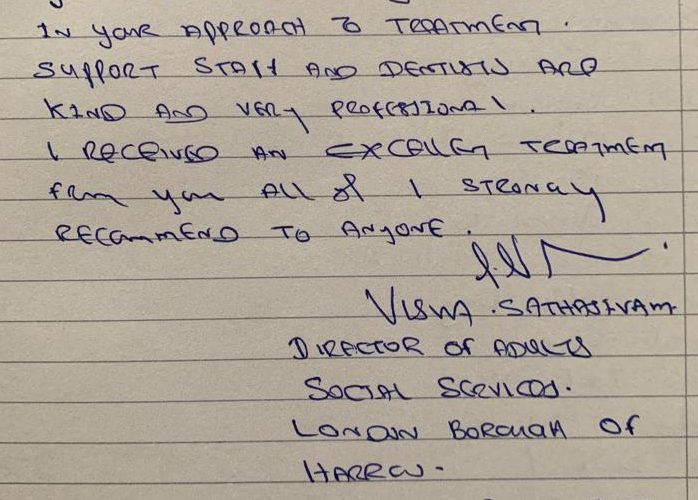 IN your APPROACH TO TREATMENT.
SUPPORT STAFF AND DENTISTS ARE
KIND AND VERY PROFESSIONAL.
I RECEIVED AN EXCELLENT TREATMENT
from you ALL & I STRONGLY
RECOMMEND TO ANYONE.
VISWA. SATHASIVAM
DIRECTOR OF ADULTS
SOCIAL SERVICES.
LONDON BOROUGH OF
HARROW.